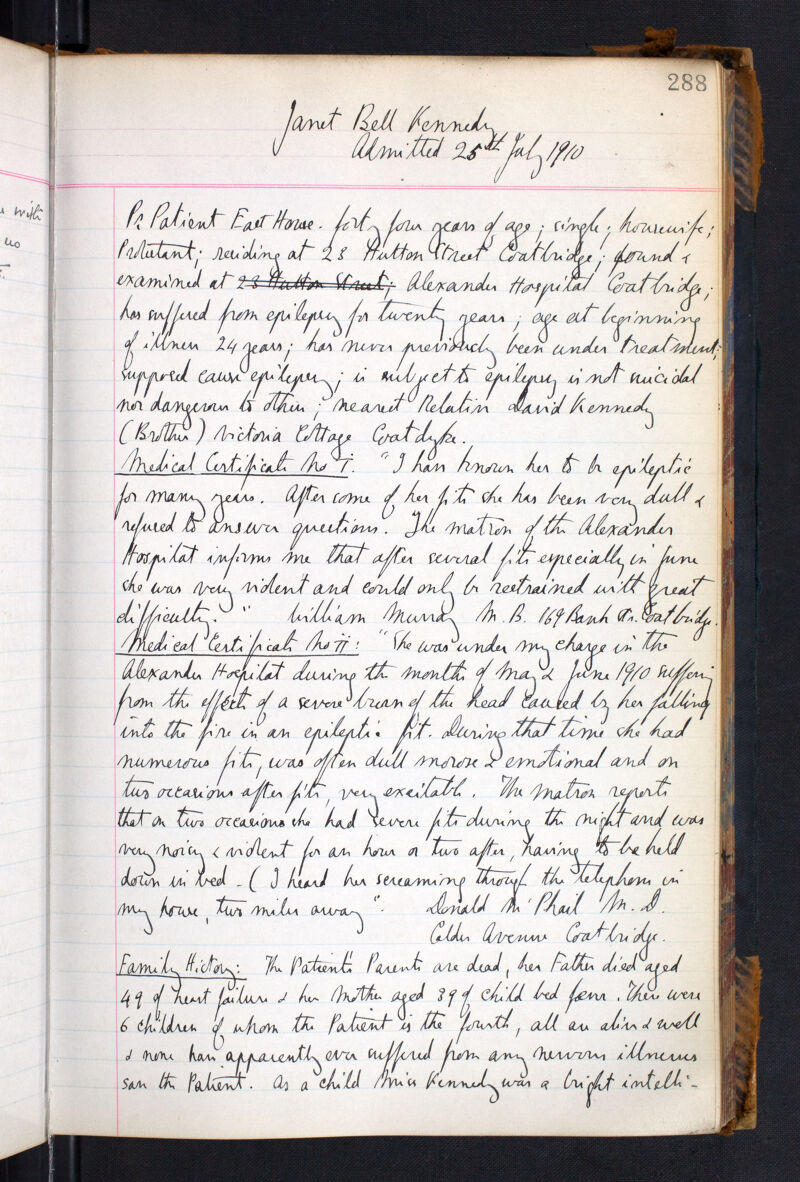 288
Janet Bell Kennedy
Admitted 25th July 1910
u with
no
Pr Patient East House. forty four years of age; single; housewife;
Protestant; residing at 23 Hutton Street Coatbridge; found &
examined at 23 Hutton Street; Alexander Hospital Coatbridge;
has suffered from epilepsy for twenty years; age at beginning
of illness 24 years; has never previously been under treatment;
supposed cause epilepsy; is subject to epilepsy is not suicidal
nor dangerous to others; nearest Relative David Kennedy
(Brother) Victoria Cottage Coatdyke.
Medical Certificate No I. "I have known her to be epileptic
for many years. After some of her fits she has been very dull &
refused to answer questions. The matron of the Alexander
Hospital informs me that after several fits especially in June
she was very violent and could only be restrained with great
difficulty." William Murray M.B. 169 Bank St. Coatbridge.
Medical Certificate No II: "She was under my charge in the
Alexander Hospital during the months of May & June 1910 suffering
from the effects of a severe burn of the head caused by her falling
into the fire in an epileptic fit. During that time she had
numerous fits, was often dull morose & emotional and on
two occasions after fits, very excitable. The Matron reports
that on two occasions she had severe fits during the night and was
very noisy & violent for an hour or two after, having to be held
down in bed - (I heard her screaming through the telephone in
my house, two miles away". Donald McPhail M.D.
Calder Avenue Coatbridge.
Family History: The Patient's Parents are dead, her Father died aged
49 of heart failure & her Mother aged 39 of child bed fever. There were
6 children of whom the Patient is the fourth, all are alive & well
& none have apparently ever suffered from any nervous illnesses
save the Patient. As a child Miss Kennedy was a bright intelli-